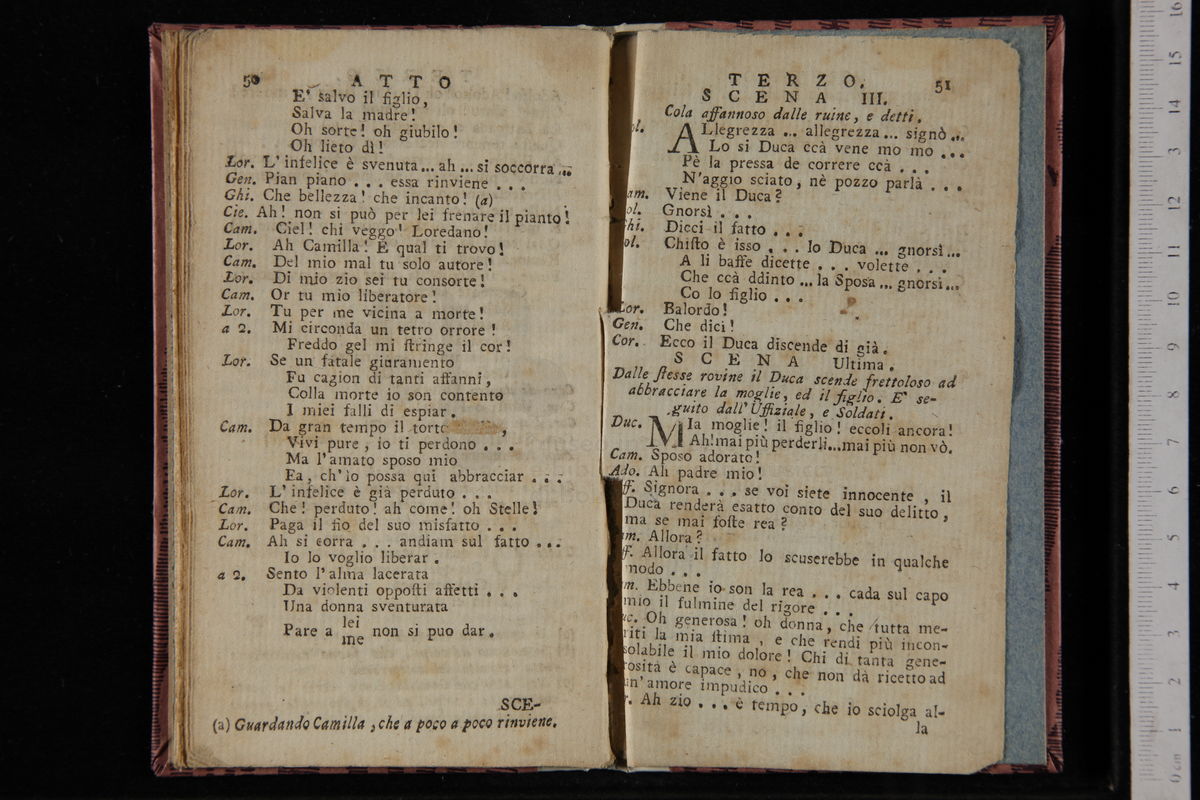 50 ATTO
E' salvo il figlio,
Salva la madre!
Oh sorte! oh giubilo!
Oh lieto dì!
Lor. L'infelice è svenuta... ah... si soccorra...
Gen. Pian piano ... essa rinviene ...
Ghi. Che bellezza! che incanto! (a)
Cie. Ah! non si può per lei frenare il pianto!
Cam. Ciel! chi veggo! Loredano!
Lor. Ah Camilla! E qual ti trovo!
Cam. Del mio mal tu solo autore!
Lor. Di mio zio sei tu consorte!
Cam. Or tu mio liberatore!
Lor. Tu per me vicina a morte!
a 2. Mi circonda un tetro orrore!
Freddo gel mi ſtringe il cor!
Lor. Se un fatale giuramento
Fu cagion di tanti affanni,
Colla morte io son contento
I miei falli di espiar.
Cam. Da gran tempo il torto ,
Vivi pure, io ti perdono ...
Ma l'amato sposo mio
Ea, ch'io possa qui abbracciar ...
Lor. L'infelice è già perduto ...
Cam. Che! perduto! ah come! oh Stelle!
Lor. Paga il fio del suo misfatto ...
Cam. Ah si corra ... andiam sul fatto ...
Io lo voglio liberar.
a 2. Sento l'alma lacerata
Da violenti oppoſti affetti ...
Una donna sventurata
Pare a lei non si puo dar.
me
SCE-
(a) Guardando Camilla, che a poco a poco rinviene.
TERZO. 51
SCENA III.
Cola affannoso dalle ruine, e detti.
ol. ALlegrezza ... allegrezza... signò...
Lo si Duca ccà vene mo mo ...
Pè la pressa de correre ccà ...
N'aggio sciato, nè pozzo parlà ...
am. Viene il Duca?
ol. Gnorsì ...
Ghi. Dicci il fatto ...
ol. Chiſto è isso ... lo Duca ... gnorsì...
A li baffe dicette ... volette ...
Che ccà ddinto ... la Sposa ... gnorsì...
Co lo figlio ...
Lor. Balordo!
Gen. Che dici!
Cor. Ecco il Duca discende di già.
SCENA Ultima.
Dalle ſtesse rovine il Duca scende frettoloso ad
abbracciare la moglie, ed il figlio. E' se-
guito dall'Uffiziale, e Soldati.
Duc. MIa moglie! il figlio! eccoli ancora!
Ah! mai più perderli...mai più non vò.
Cam. Sposo adorato!
Ado. Ah padre mio!
ff. Signora ... se voi siete innocente, il
Duca renderà esatto conto del suo delitto,
ma se mai foſte rea?
am. Allora?
ff. Allora il fatto lo scuserebbe in qualche
modo ...
m. Ebbene io son la rea ... cada sul capo
mio il fulmine del rigore ...
uc. Oh generosa! oh donna, che tutta me-
riti la mia ſtima, e che rendi più incon-
solabile il mio dolore! Chi di tanta gene-
rosità è capace, no, che non dà ricetto ad
un'amore impudico ...
r. Ah zio ... è tempo, che io sciolga al-
la